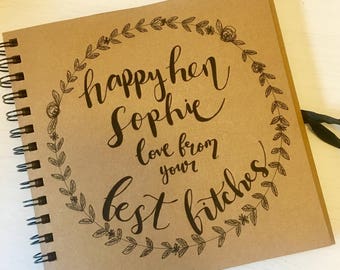 happy hen
Sophie
love from
your
best bitches